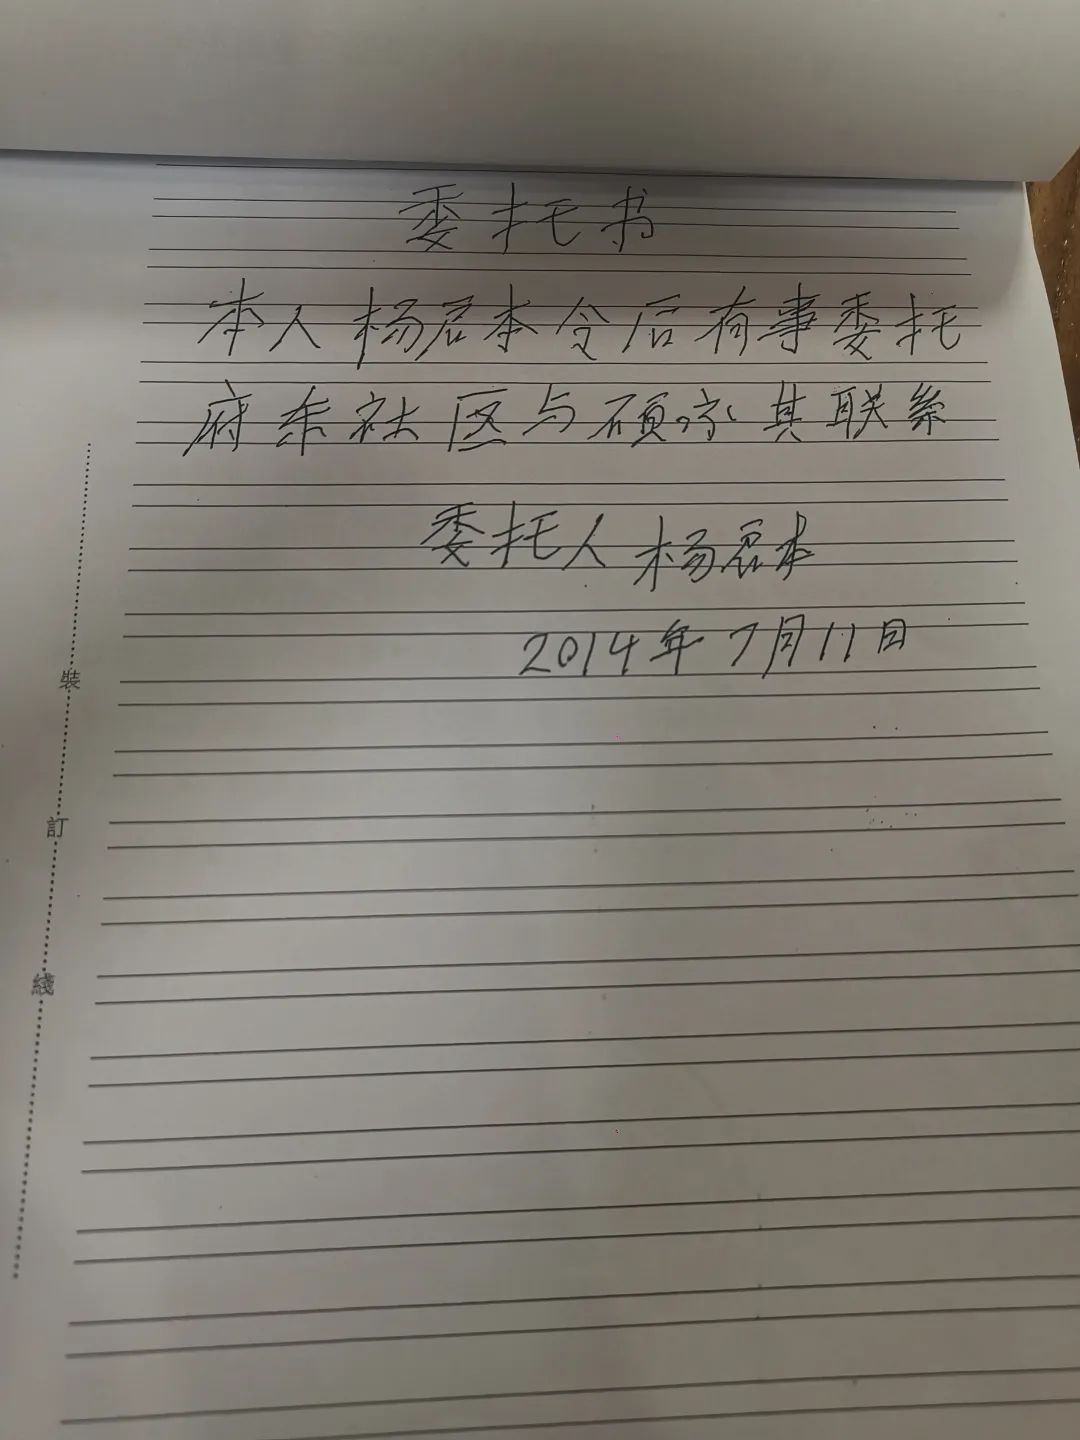 委托书
本人杨君本今后有事委托
府东社区与硕其联系
委托人杨君本
2014年7月11日
裝
訂
綫